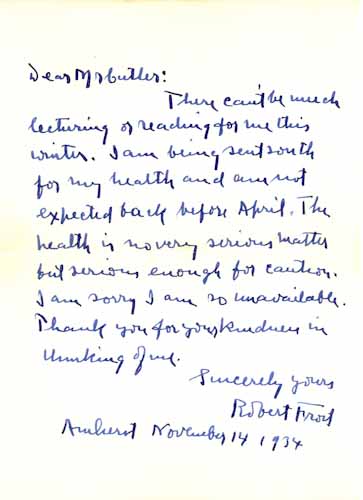 Dear Mr Cutler:
There can't be much
lecturing or reading for me this
winter. I am being sent south
for my health and am not
expected back before April. The
health is no very serious matter
but serious enough for caution.
I am sorry I am so unavailable.
Thank you for your kindness in
thinking of me.
Sincerely yours
Robert Frost
Amherst November 14 1934